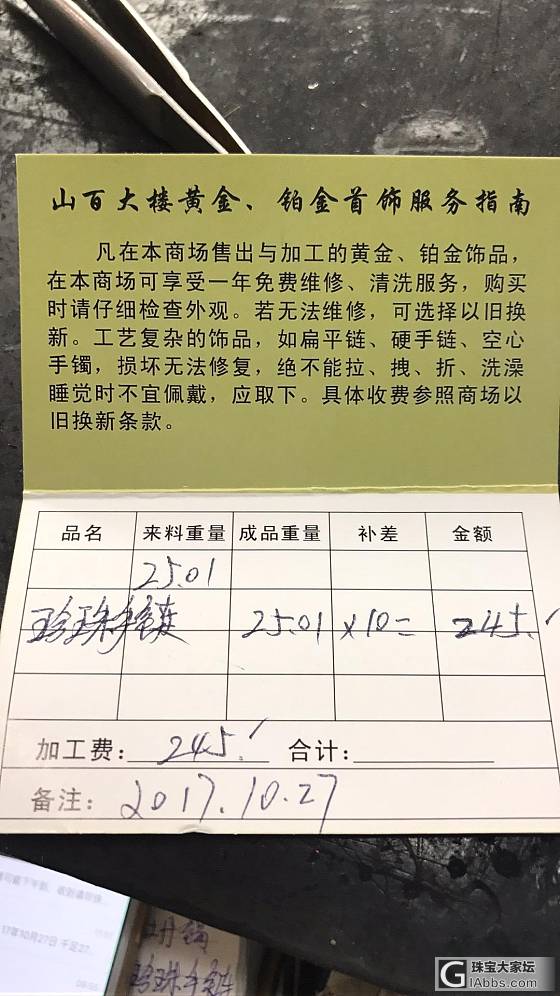 山百大楼黄金、铂金首饰服务指南
凡在本商场售出与加工的黄金、铂金饰品，
在本商场可享受一年免费维修、清洗服务，购买
时请仔细检查外观。若无法维修，可选择以旧换
新。工艺复杂的饰品，如扁平链、硬手链、空心
手镯，损坏无法修复，绝不能拉、拽、折、洗澡
睡觉时不宜佩戴，应取下。具体收费参照商场以
旧换新条款。
品名 来料重量 成品重量 补差 金额
25.01
珍珠手链 25.01 x10= 245.
加工费: 245. 合计:
备注: 2017.10.27
17年10月27日 千足27.
珍珠手链
珠宝大家坛
GIAbbs.com